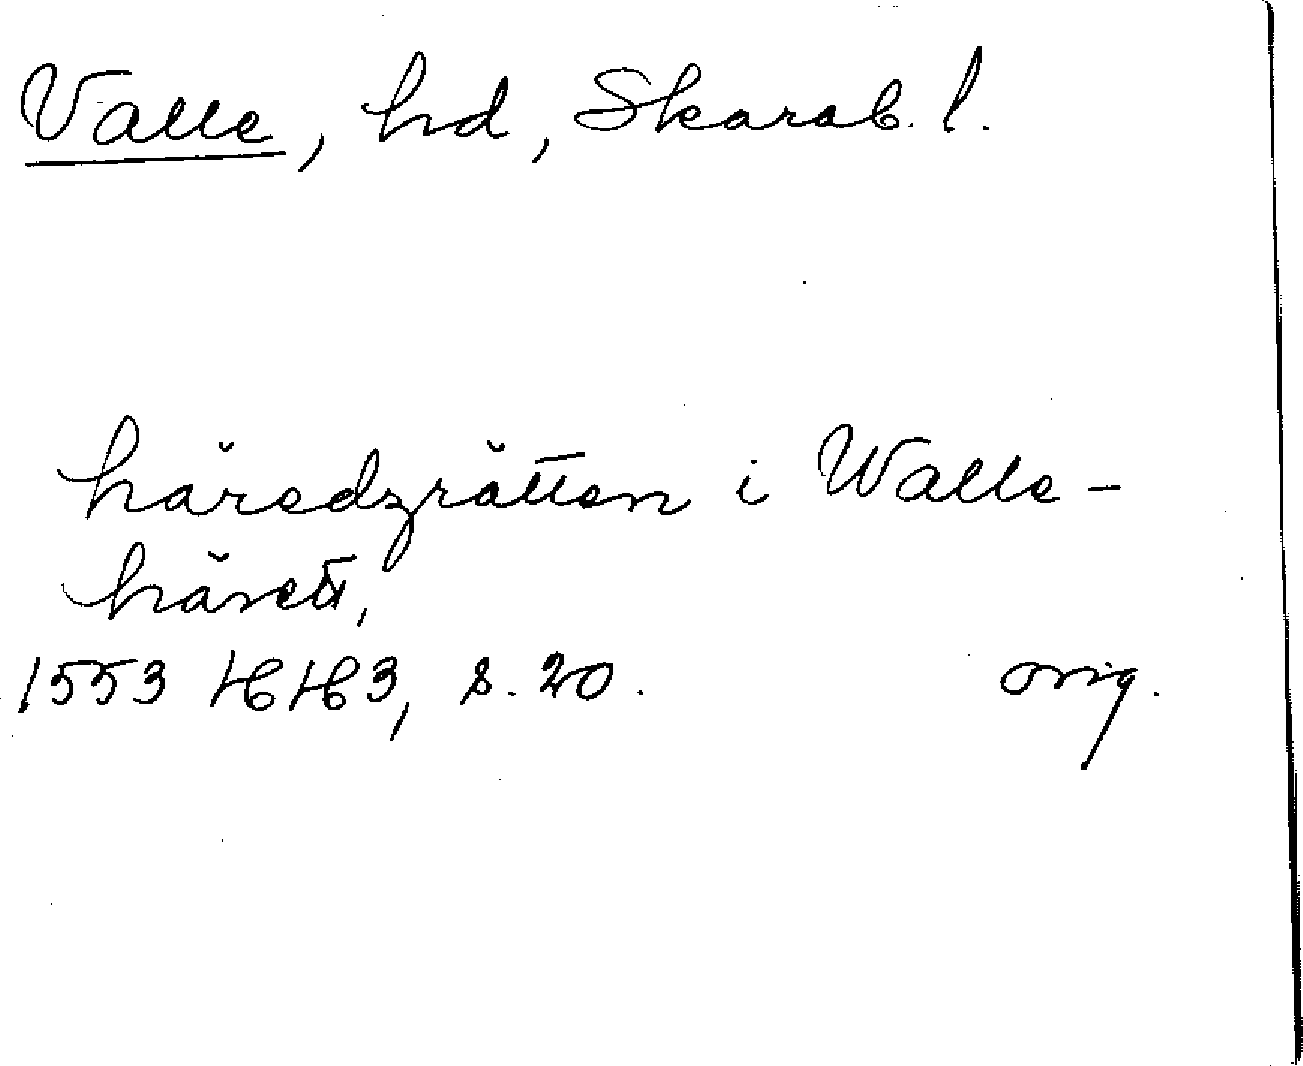 Valle, hd, Skarab. l.
häredzrätten i Walle-
härett,
1553 HH3, s. 20. orig.